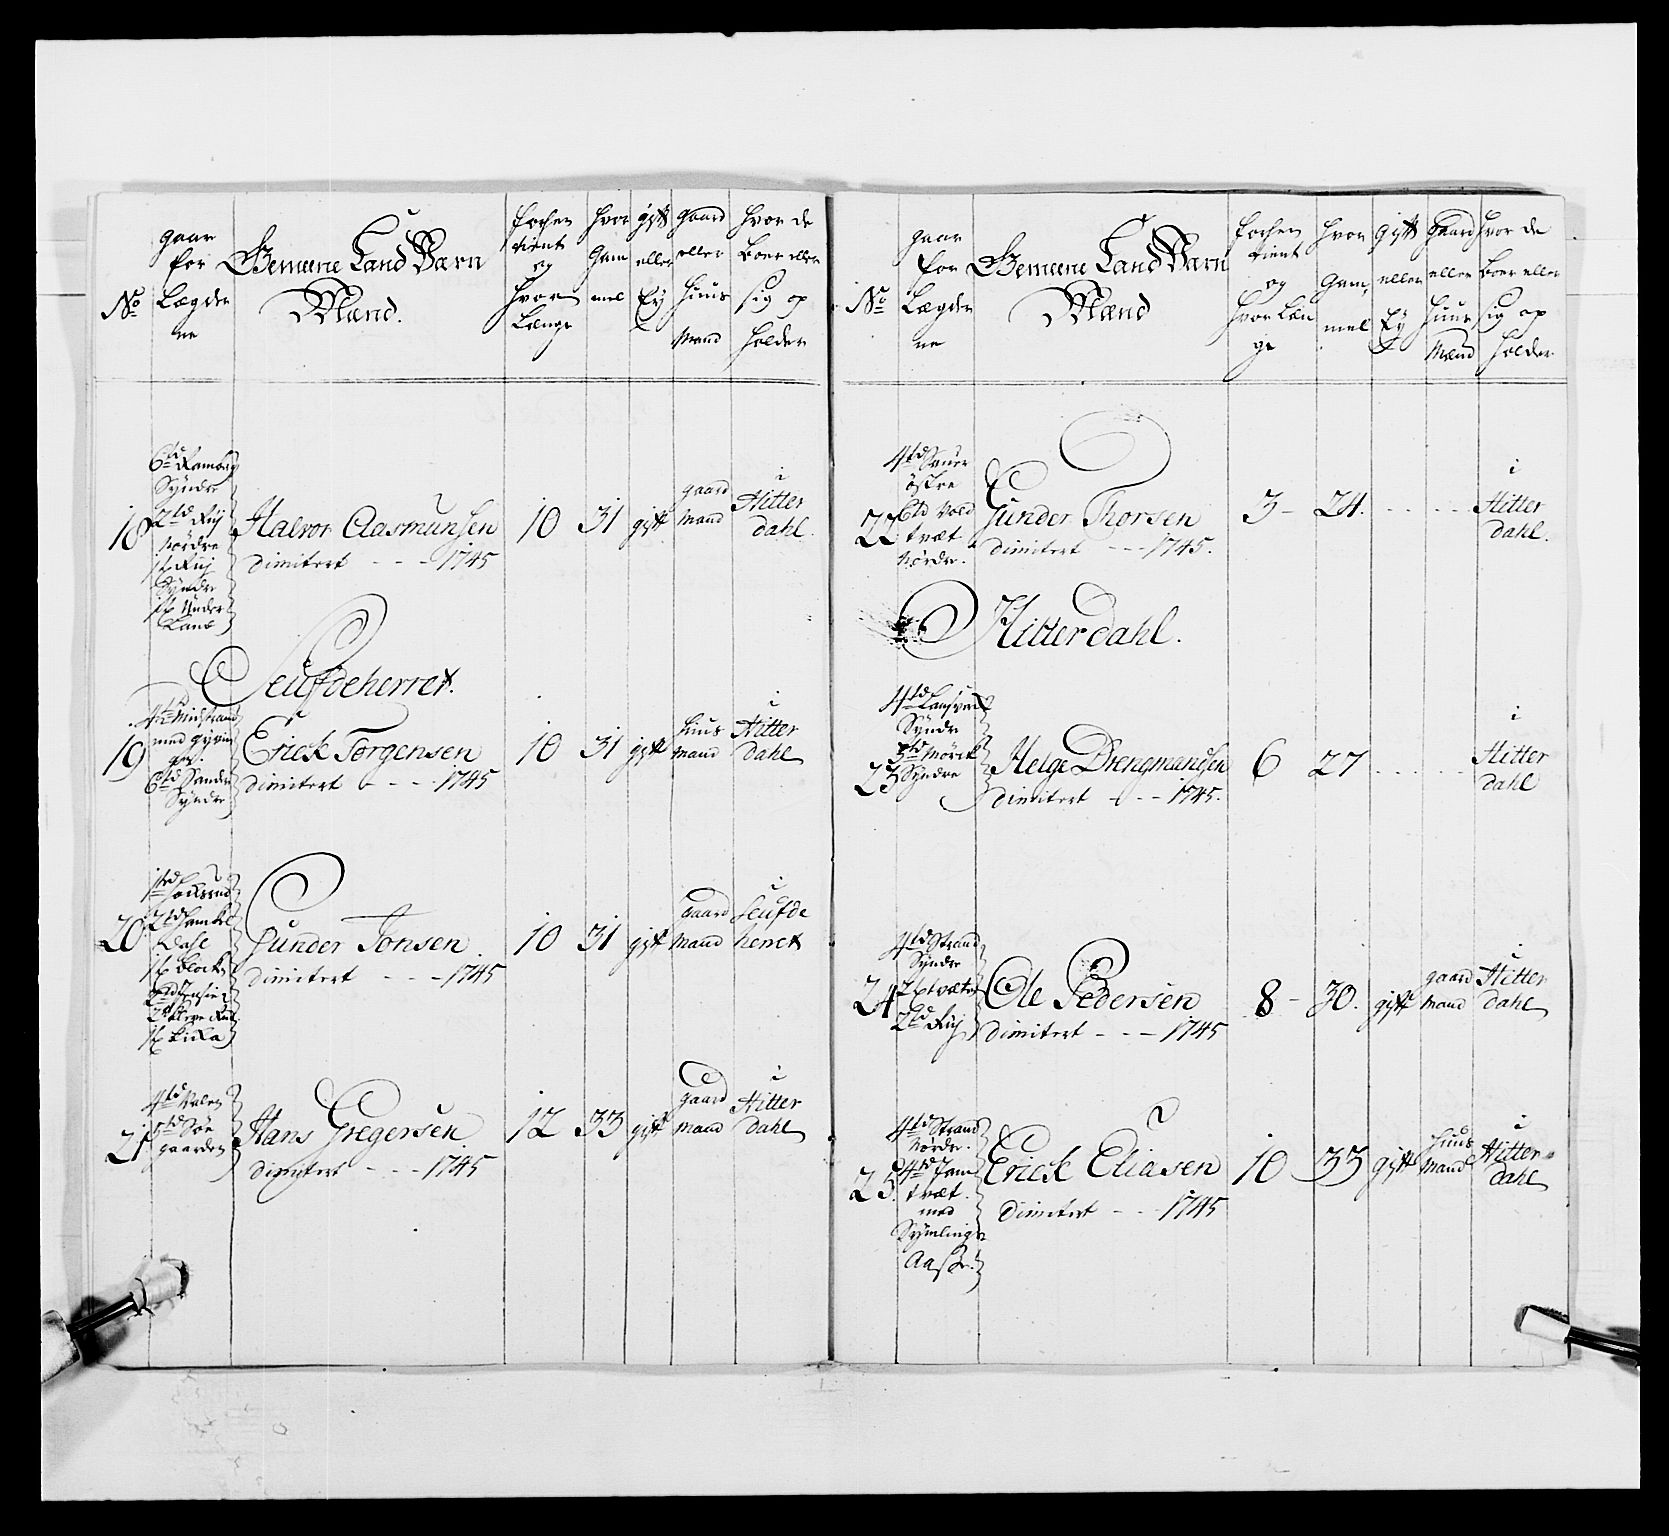 No
gaar
for
Lægder
ne
Gemeene Land Værn
Mænd.
forhen
tient
og
hvor
Længe
hvor
Gam
mel
gift
eller
Ey
gaard
eller
huus
Mand
hvor de
boer eller
sig op
holder
18
Syndre
2td Ruj
Nørdre
Syndre
Halvor Aasmunsen
dimitert - - - 1745
10
31
gift
gaard
Mand
i
Hitter
dahl.
Seufdeherret.
19
Syndre
Erick Torgensen
dimitert - - - 1745
10
31
gift
huus
Mand
i
Hitter
dahl
20
Dahl
Gunder Jonsen
dimitert - - - 1745
10
31
gift
Gaard
Mand
i
Seufde
herret
21
gaarden
Hans Gregersen
dimitert - - - 1745
12
33
gift
gaard
Mand
i
Hitter
dahl
No
gaar
for
Lægder
ne
Gemeene Land Værn
Mænd
forhen
tient
og
hvor Læn
ge
hvor
Gam,
mel
gift
eller
Ey
gaard
eller
huus
Mænd
hvor de
boer eller
sig op
holder
22
østre
tvæt
Nørdre.
Gunder Thorsen
dimitert - - - 1745.
3 -
24.
- - - - -
i
Hitter
dahl.
Hitterdahl.
23
Syndre
Syndre
Helge Drengmandsen
dimitert - - - 1745.
6
27
- - - - -
i
Hitter
dahl
24
4td Strand
Syndre
2td Ruj
Ole Pedersen
dimitert - - - 1745
8 -
30.
gift
gaard
Mand
i
Hitter
dahl
25.
4td Strand
Nørdre.
tvæt.
med
Erick Eliasen
dimitert - - - 1745
10
33
gift
huus
Mand
i
Hitter=
dahl